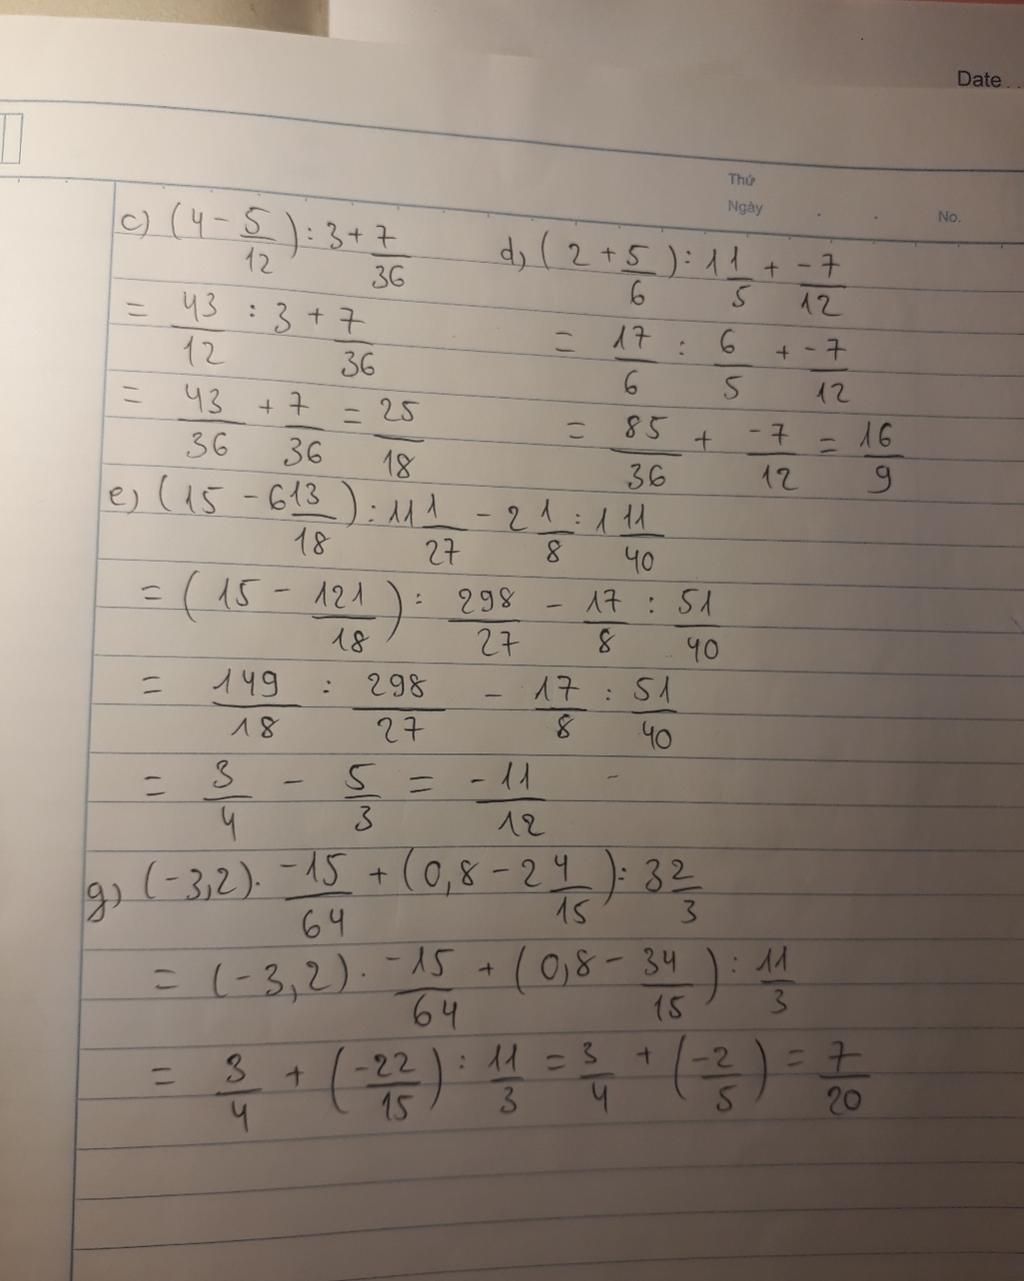 Date . .
Thứ
Ngày . . No.
c) (4 - 5/12) : 3 + 7/36
= 43/12 : 3 + 7/36
= 43/36 + 7/36 = 25/18
d) (2 + 5/6) : 1 1/5 + -7/12
= 17/6 : 6/5 + -7/12
= 85/36 + -7/12 = 16/9
e) (15 - 6 13/18) : 11 1/27 - 2 1/8 : 1 11/40
= (15 - 121/18) : 298/27 - 17/8 : 51/40
= 149/18 : 298/27 - 17/8 : 51/40
= 3/4 - 5/3 = -11/12
g) (-3,2) . -15/64 + (0,8 - 2 4/15) : 3 2/3
= (-3,2) . -15/64 + (0,8 - 34/15) : 11/3
= 3/4 + (-22/15) : 11/3 = 3/4 + (-2/5) = 7/20